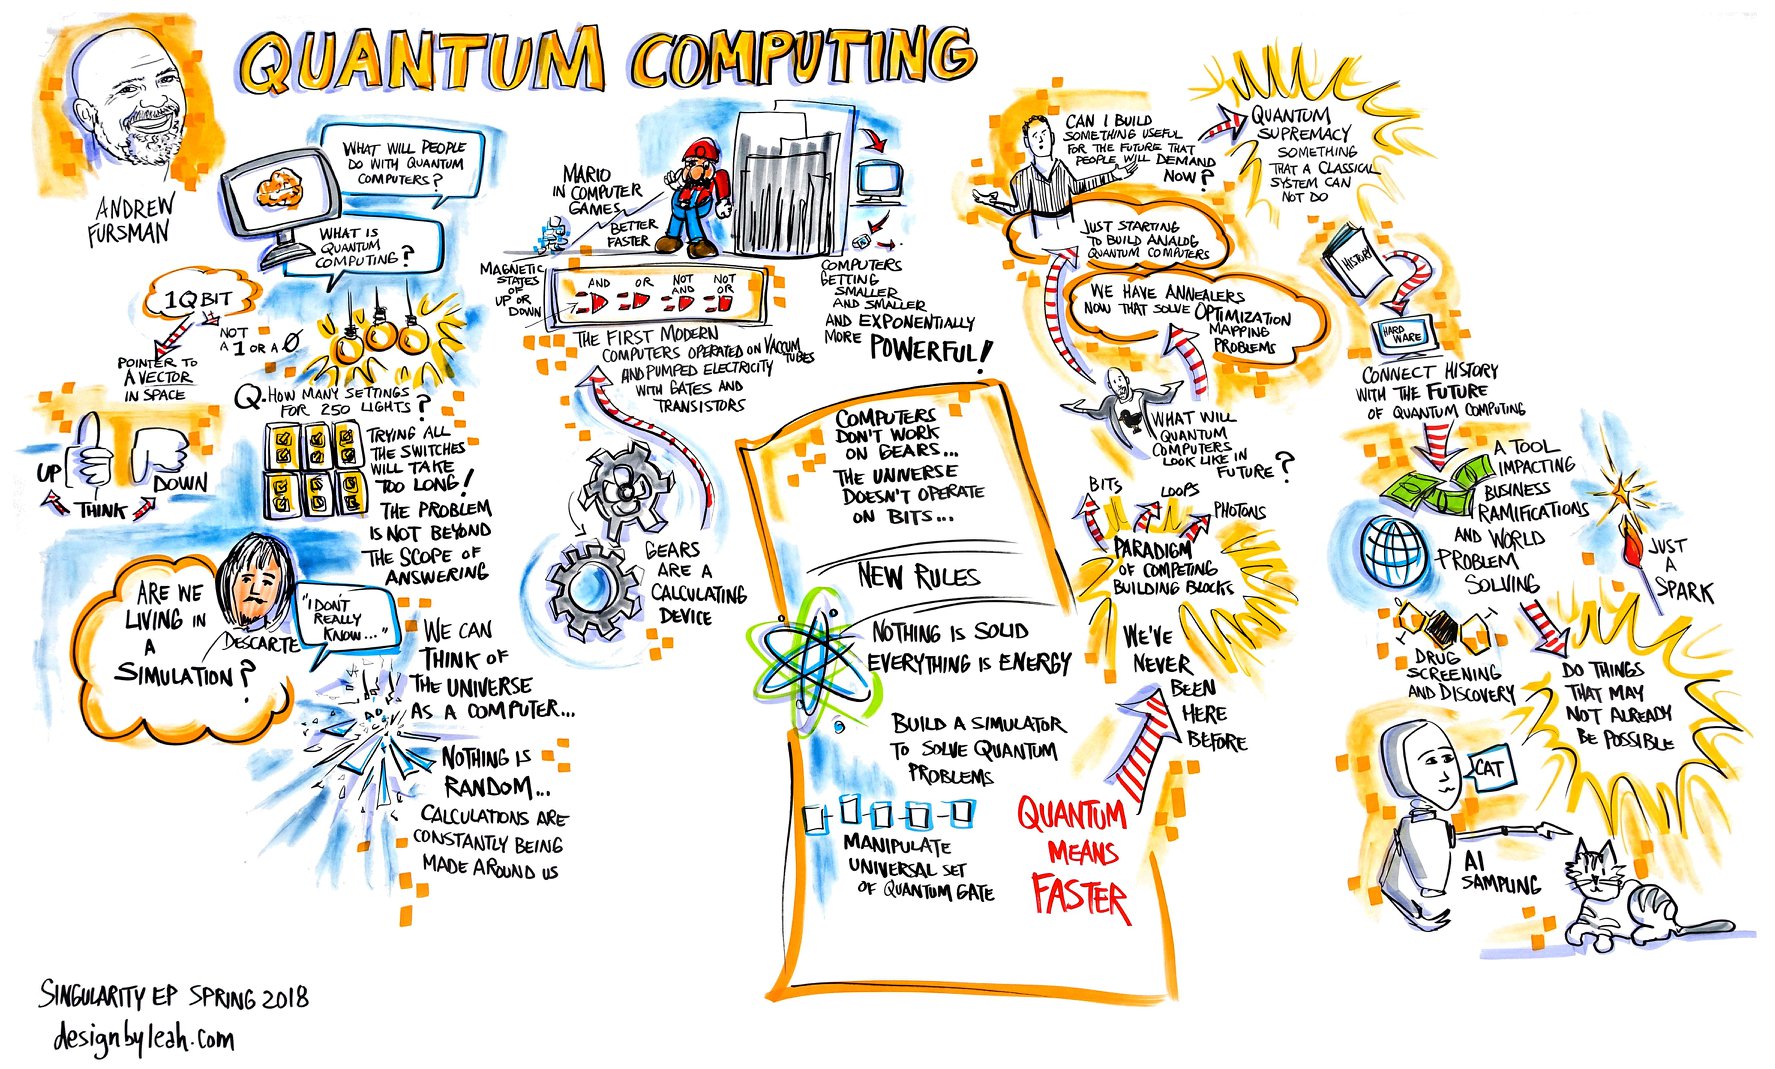 QUANTUM COMPUTING
ANDREW
FURSMAN
WHAT WILL PEOPLE
DO WITH QUANTUM
COMPUTERS?
WHAT IS
QUANTUM
COMPUTING?
1QBIT
NOT
A 1 OR A 0
POINTER TO
A VECTOR
IN SPACE
UP
DOWN
THINK
Q. HOW MANY SETTINGS
FOR 250 LIGHTS?
TRYING ALL
THE SWITCHES
WILL TAKE
TOO LONG!
THE PROBLEM
IS NOT BEYOND
THE SCOPE OF
ANSWERING
ARE WE
LIVING IN
A
SIMULATION?
DESCARTE
"I DON'T
REALLY
KNOW..."
WE CAN
THINK OF
THE UNIVERSE
AS A COMPUTER...
NOTHING IS
RANDOM...
CALCULATIONS ARE
CONSTANTLY BEING
MADE AROUND US
MARIO
IN COMPUTER
GAMES
BETTER
FASTER
MAGNETIC
STATES
OF
UP OR
DOWN
AND
OR
NOT
AND
NOT
OR
THE FIRST MODERN
COMPUTERS OPERATED ON VACCUM
TUBES
AND PUMPED ELECTRICITY
WITH GATES AND
TRANSISTORS
COMPUTERS
GETTING
SMALLER
AND SMALLER
AND EXPONENTIALLY
MORE POWERFUL!
GEARS
ARE A
CALCULATING
DEVICE
COMPUTERS
DON'T WORK
ON GEARS...
THE UNIVERSE
DOESN'T OPERATE
ON BITS...
NEW RULES
NOTHING IS SOLID
EVERYTHING IS ENERGY
BUILD A SIMULATOR
TO SOLVE QUANTUM
PROBLEMS
MANIPULATE
UNIVERSAL SET
OF QUANTUM GATE
QUANTUM
MEANS
FASTER
WE'VE
NEVER
BEEN
HERE
BEFORE
PARADIGM
OF COMPETING
BUILDING BLOCKS
BITS
LOOPS
PHOTONS
WHAT WILL
QUANTUM
COMPUTERS
LOOK LIKE IN
FUTURE?
WE HAVE ANNEALERS
NOW THAT SOLVE OPTIMIZATION
MAPPING
PROBLEMS
JUST STARTING
TO BUILD ANALOG
QUANTUM COMPUTERS
CAN I BUILD
SOMETHING USEFUL
FOR THE FUTURE THAT
PEOPLE WILL DEMAND
NOW?
QUANTUM
SUPREMACY
SOMETHING
THAT A CLASSICAL
SYSTEM CAN
NOT DO
HISTORY
HARD
WARE
CONNECT HISTORY
WITH THE FUTURE
OF QUANTUM COMPUTING
A TOOL
IMPACTING
BUSINESS
RAMIFICATIONS
AND WORLD
PROBLEM
SOLVING
JUST
A
SPARK
DRUG
SCREENING
AND DISCOVERY
DO THINGS
THAT MAY
NOT ALREADY
BE POSSIBLE
CAT
AI
SAMPLING
SINGULARITY EP SPRING 2018
designbyleah.com